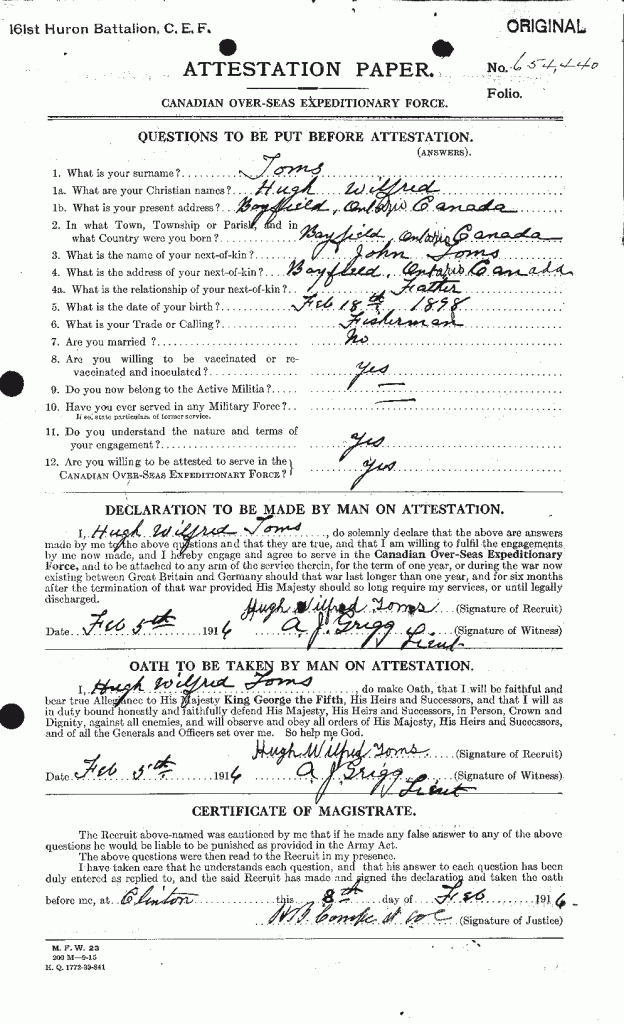 161st Huron Battalion, C. E. F.
ORIGINAL
ATTESTATION PAPER.
No. 654,440
Folio.
CANADIAN OVER-SEAS EXPEDITIONARY FORCE.
QUESTIONS TO BE PUT BEFORE ATTESTATION.
(ANSWERS).
1. What is your surname? Toms
1a. What are your Christian names? Hugh Wilfred
1b. What is your present address? Bayfield, Ontario Canada
2. In what Town, Township or Parish, and in
what Country were you born? Bayfield, Ontario Canada
3. What is the name of your next-of-kin? John Toms
4. What is the address of your next-of-kin? Bayfield, Ontario Canada
4a. What is the relationship of your next-of-kin? Father
5. What is the date of your birth? Feb 18th 1898
6. What is your Trade or Calling? Fisherman
7. Are you married? No
8. Are you willing to be vaccinated or re-
vaccinated and inoculated? Yes
9. Do you now belong to the Active Militia? —
10. Have you ever served in any Military Force? —
If so, state particulars of former service.
11. Do you understand the nature and terms of
your engagement? Yes
12. Are you willing to be attested to serve in the
CANADIAN OVER-SEAS EXPEDITIONARY FORCE? Yes
DECLARATION TO BE MADE BY MAN ON ATTESTATION.
I, Hugh Wilfred Toms, do solemnly declare that the above are answers
made by me to the above questions and that they are true, and that I am willing to fulfil the engagements
by me now made, and I hereby engage and agree to serve in the Canadian Over-Seas Expeditionary
Force, and to be attached to any arm of the service therein, for the term of one year, or during the war now
existing between Great Britain and Germany should that war last longer than one year, and for six months
after the termination of that war provided His Majesty should so long require my services, or until legally
discharged.
Hugh Wilfred Toms (Signature of Recruit)
Date Feb 5th 1916 A J Grigg Lieut (Signature of Witness)
OATH TO BE TAKEN BY MAN ON ATTESTATION.
I, Hugh Wilfred Toms, do make Oath, that I will be faithful and
bear true Allegiance to His Majesty King George the Fifth, His Heirs and Successors, and that I will as
in duty bound honestly and faithfully defend His Majesty, His Heirs and Successors, in Person, Crown and
Dignity, against all enemies, and will observe and obey all orders of His Majesty, His Heirs and Successors,
and of all the Generals and Officers set over me. So help me God.
Hugh Wilfred Toms (Signature of Recruit)
Date Feb 5th 1916 A J Grigg Lieut (Signature of Witness)
CERTIFICATE OF MAGISTRATE.
The Recruit above-named was cautioned by me that if he made any false answer to any of the above
questions he would be liable to be punished as provided in the Army Act.
The above questions were then read to the Recruit in my presence.
I have taken care that he understands each question, and that his answer to each question has been
duly entered as replied to, and the said Recruit has made and signed the declaration and taken the oath
before me, at Clinton this 8th day of Feb 1916.
(Signature of Justice)
M. F. W. 23
200 M—9-15
H. Q. 1772-39-841